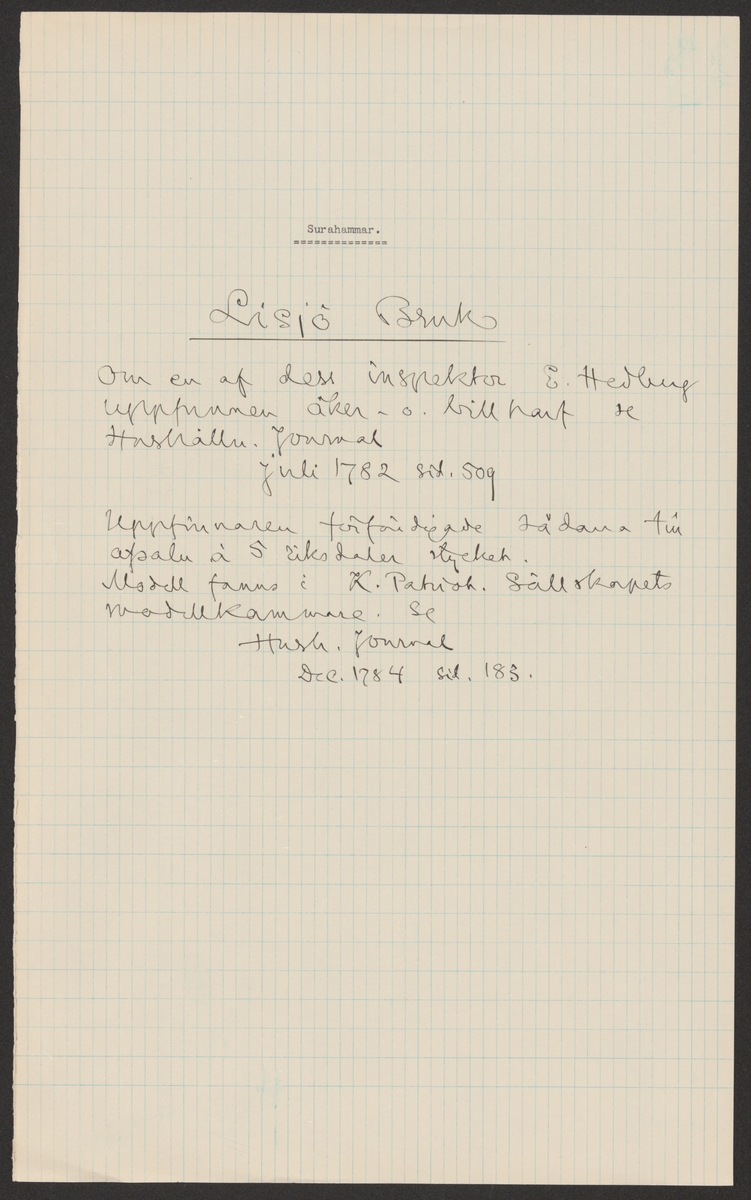 Surahammar.
==============
Lisjö Bruk
Om en af dess inspektor E. Hedberg
uppfunnen åker- o. vill harf se
Hushålln. Journal
juli 1782 sid. 509
Uppfinnaren förfärdigade sådana till
afsalu à 5 Riksdaler stycket.
Modell fanns i K. Patriot. Sällskapets
modellkammare. Se
Hush. Journal
Dec. 1784 sid. 183.